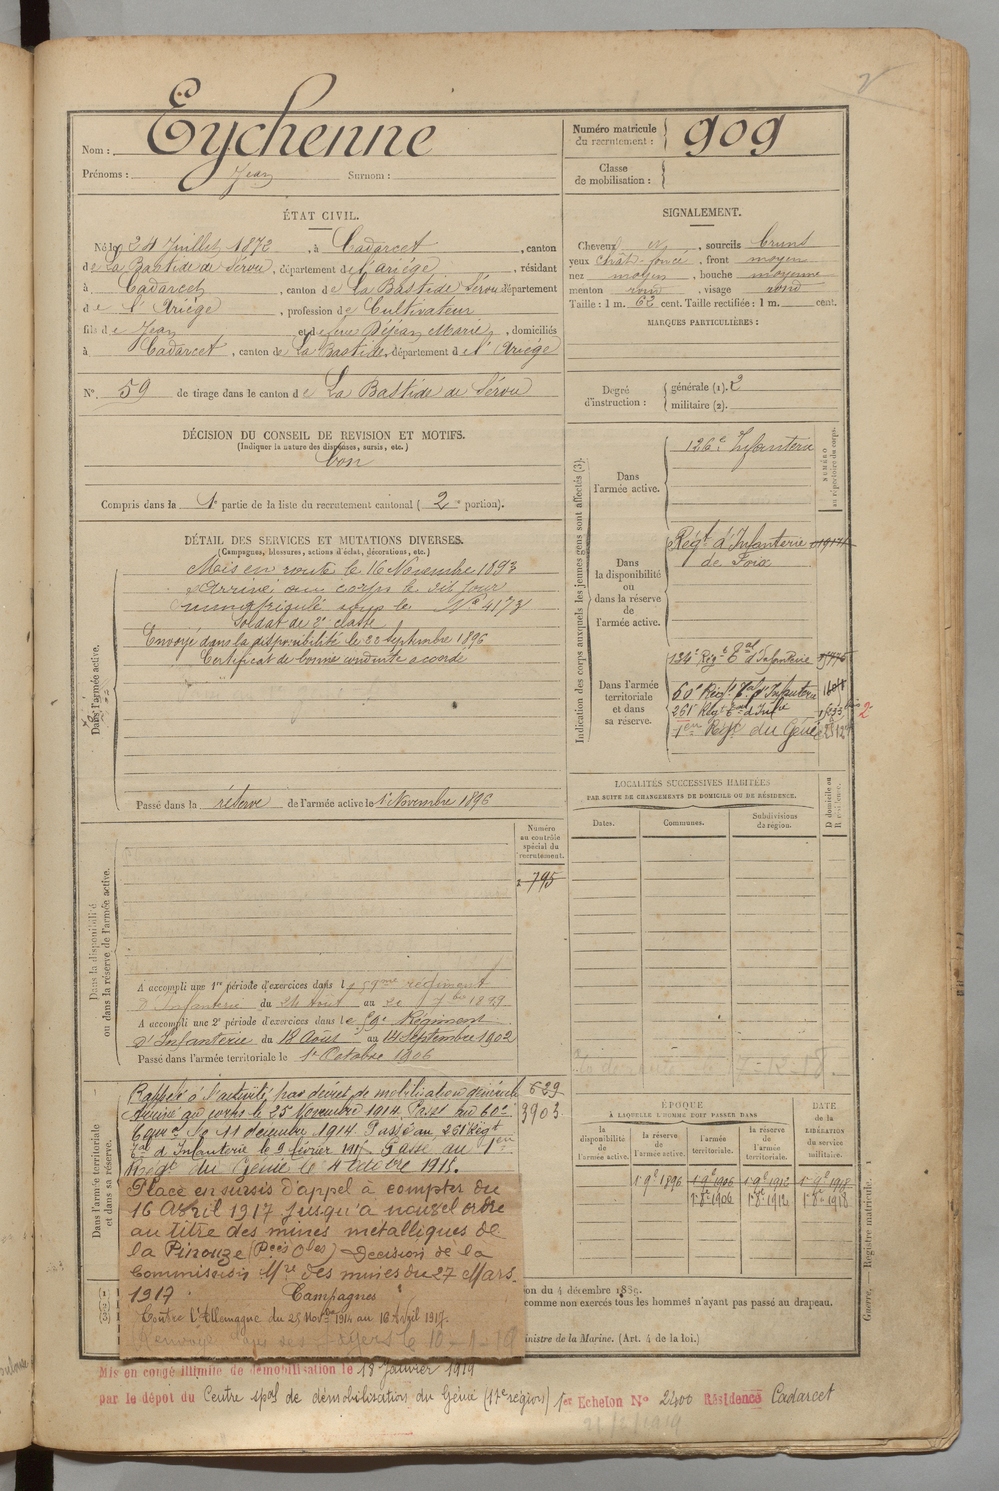 Nom : Eychenne
Prénoms : Jean Surnom :
Numéro matricule du recrutement : 909
Classe de mobilisation :
ÉTAT CIVIL.
Né le 24 Juillet 1872, à Cadarcet, canton
de La Bastide de Sérou, département de l'Ariège, résidant
à Cadarcet, canton de La Bastide Sérou département
de l'Ariège, profession de Cultivateur
fils de Jean et de Déjean Marie, domiciliés
à Cadarcet, canton de La Bastide, département de l'Ariège
N° 59 de tirage dans le canton de La Bastide de Sérou
DÉCISION DU CONSEIL DE REVISION ET MOTIFS.
(Indiquer la nature des dispenses, sursis, etc.)
bon
Compris dans la 1e partie de la liste du recrutement cantonal (2e portion).
SIGNALEMENT.
Cheveux , sourcils bruns
yeux chât-foncé, front moyen
nez moyen, bouche moyenne
menton rond, visage rond
Taille : 1 m. 62 cent. Taille rectifiée : 1 m. cent.
MARQUES PARTICULIÈRES :
Degré d'instruction : générale (1). 2
militaire (2).
DÉTAIL DES SERVICES ET MUTATIONS DIVERSES.
(Campagnes, blessures, actions d'éclat, décorations, etc.)
Dans l'armée active.
Mis en route le 16 Novembre 1893
Arrivé au corps le dit jour
immatriculé sous le N° 4173
Soldat de 2e classe
Envoyé dans la disponibilité le 22 septembre 1896
Certificat de bonne conduite accordé
Passé dans la réserve de l'armée active le 1er Novembre 1896
Indication des corps auxquels les jeunes gens sont affectés (3).
NUMÉRO au répertoire du corps.
Dans l'armée active.
126e Infanterie
Dans la disponibilité ou dans la réserve de l'armée active.
Régt d'Infanterie
de Foix
Dans l'armée territoriale et dans sa réserve.
134e Régt Tal d'Infanterie
60e Régt Tal d'Infanterie
261e Régt Tal d'Infie
1er Régt du Génie
2
LOCALITÉS SUCCESSIVES HABITÉES
PAR SUITE DE CHANGEMENTS DE DOMICILE OU DE RÉSIDENCE.
Dates. Communes. Subdivisions de région. D domicile ou R résidence.
Dans la disponibilité ou dans la réserve de l'armée active.
Numéro au contrôle spécial du recrutement.
795
A accompli une 1re période d'exercices dans le 59me régiment
d'Infanterie du 24 Août au 7bre 1899
A accompli une 2e période d'exercices dans le 59e Régiment
d'Infanterie du 18 Août au 14 Septembre 1902
Passé dans l'armée territoriale le 1er Octobre 1906
Dans l'armée territoriale et dans sa réserve.
Rappelé à l'activité par décret de mobilisation générale
629
Arrivé au corps le 25 Novembre 1914. Passé au 60e
3903
le 11 décembre 1914. Passé au 261e Régt
Tal d'Infanterie le 9 février 1915. Passé au 1er
Régt du Génie le 4 octobre 1915.
Placé en sursis d'appel à compter du
16 Avril 1917 jusqu'à nouvel ordre
au titre des mines métalliques de
la Pinouze (Pees Oles) Décision de la
Commission Mre des mines du 27 Mars
1917.
Campagnes
Contre l'Allemagne du 25 Novbre 1914 au 16 Avril 1917.
ÉPOQUE
À LAQUELLE L'HOMME DOIT PASSER DANS
DATE de la LIBÉRATION du service militaire.
la disponibilité de l'armée active. la réserve de l'armée active. l'armée territoriale. la réserve de l'armée territoriale.
1er 9e 1896 1er 9e 1906 1er 9e 1912 1er 9e 1918
1er 8e 1906 1er 8e 1912 1er 8e 1918
ion du 4 décembre 1889.
comme non exercés tous les hommes n'ayant pas passé au drapeau.
inistre de la Marine. (Art. 4 de la loi.)
Guerre. — Registre matricule. 1
Mis en congé illimité de démobilisation le 18 Janvier 1919
par le dépôt du Centre spal de démobilisation du Génie (17e région) 1er Echelon N° 2400 Résidence Cadarcet